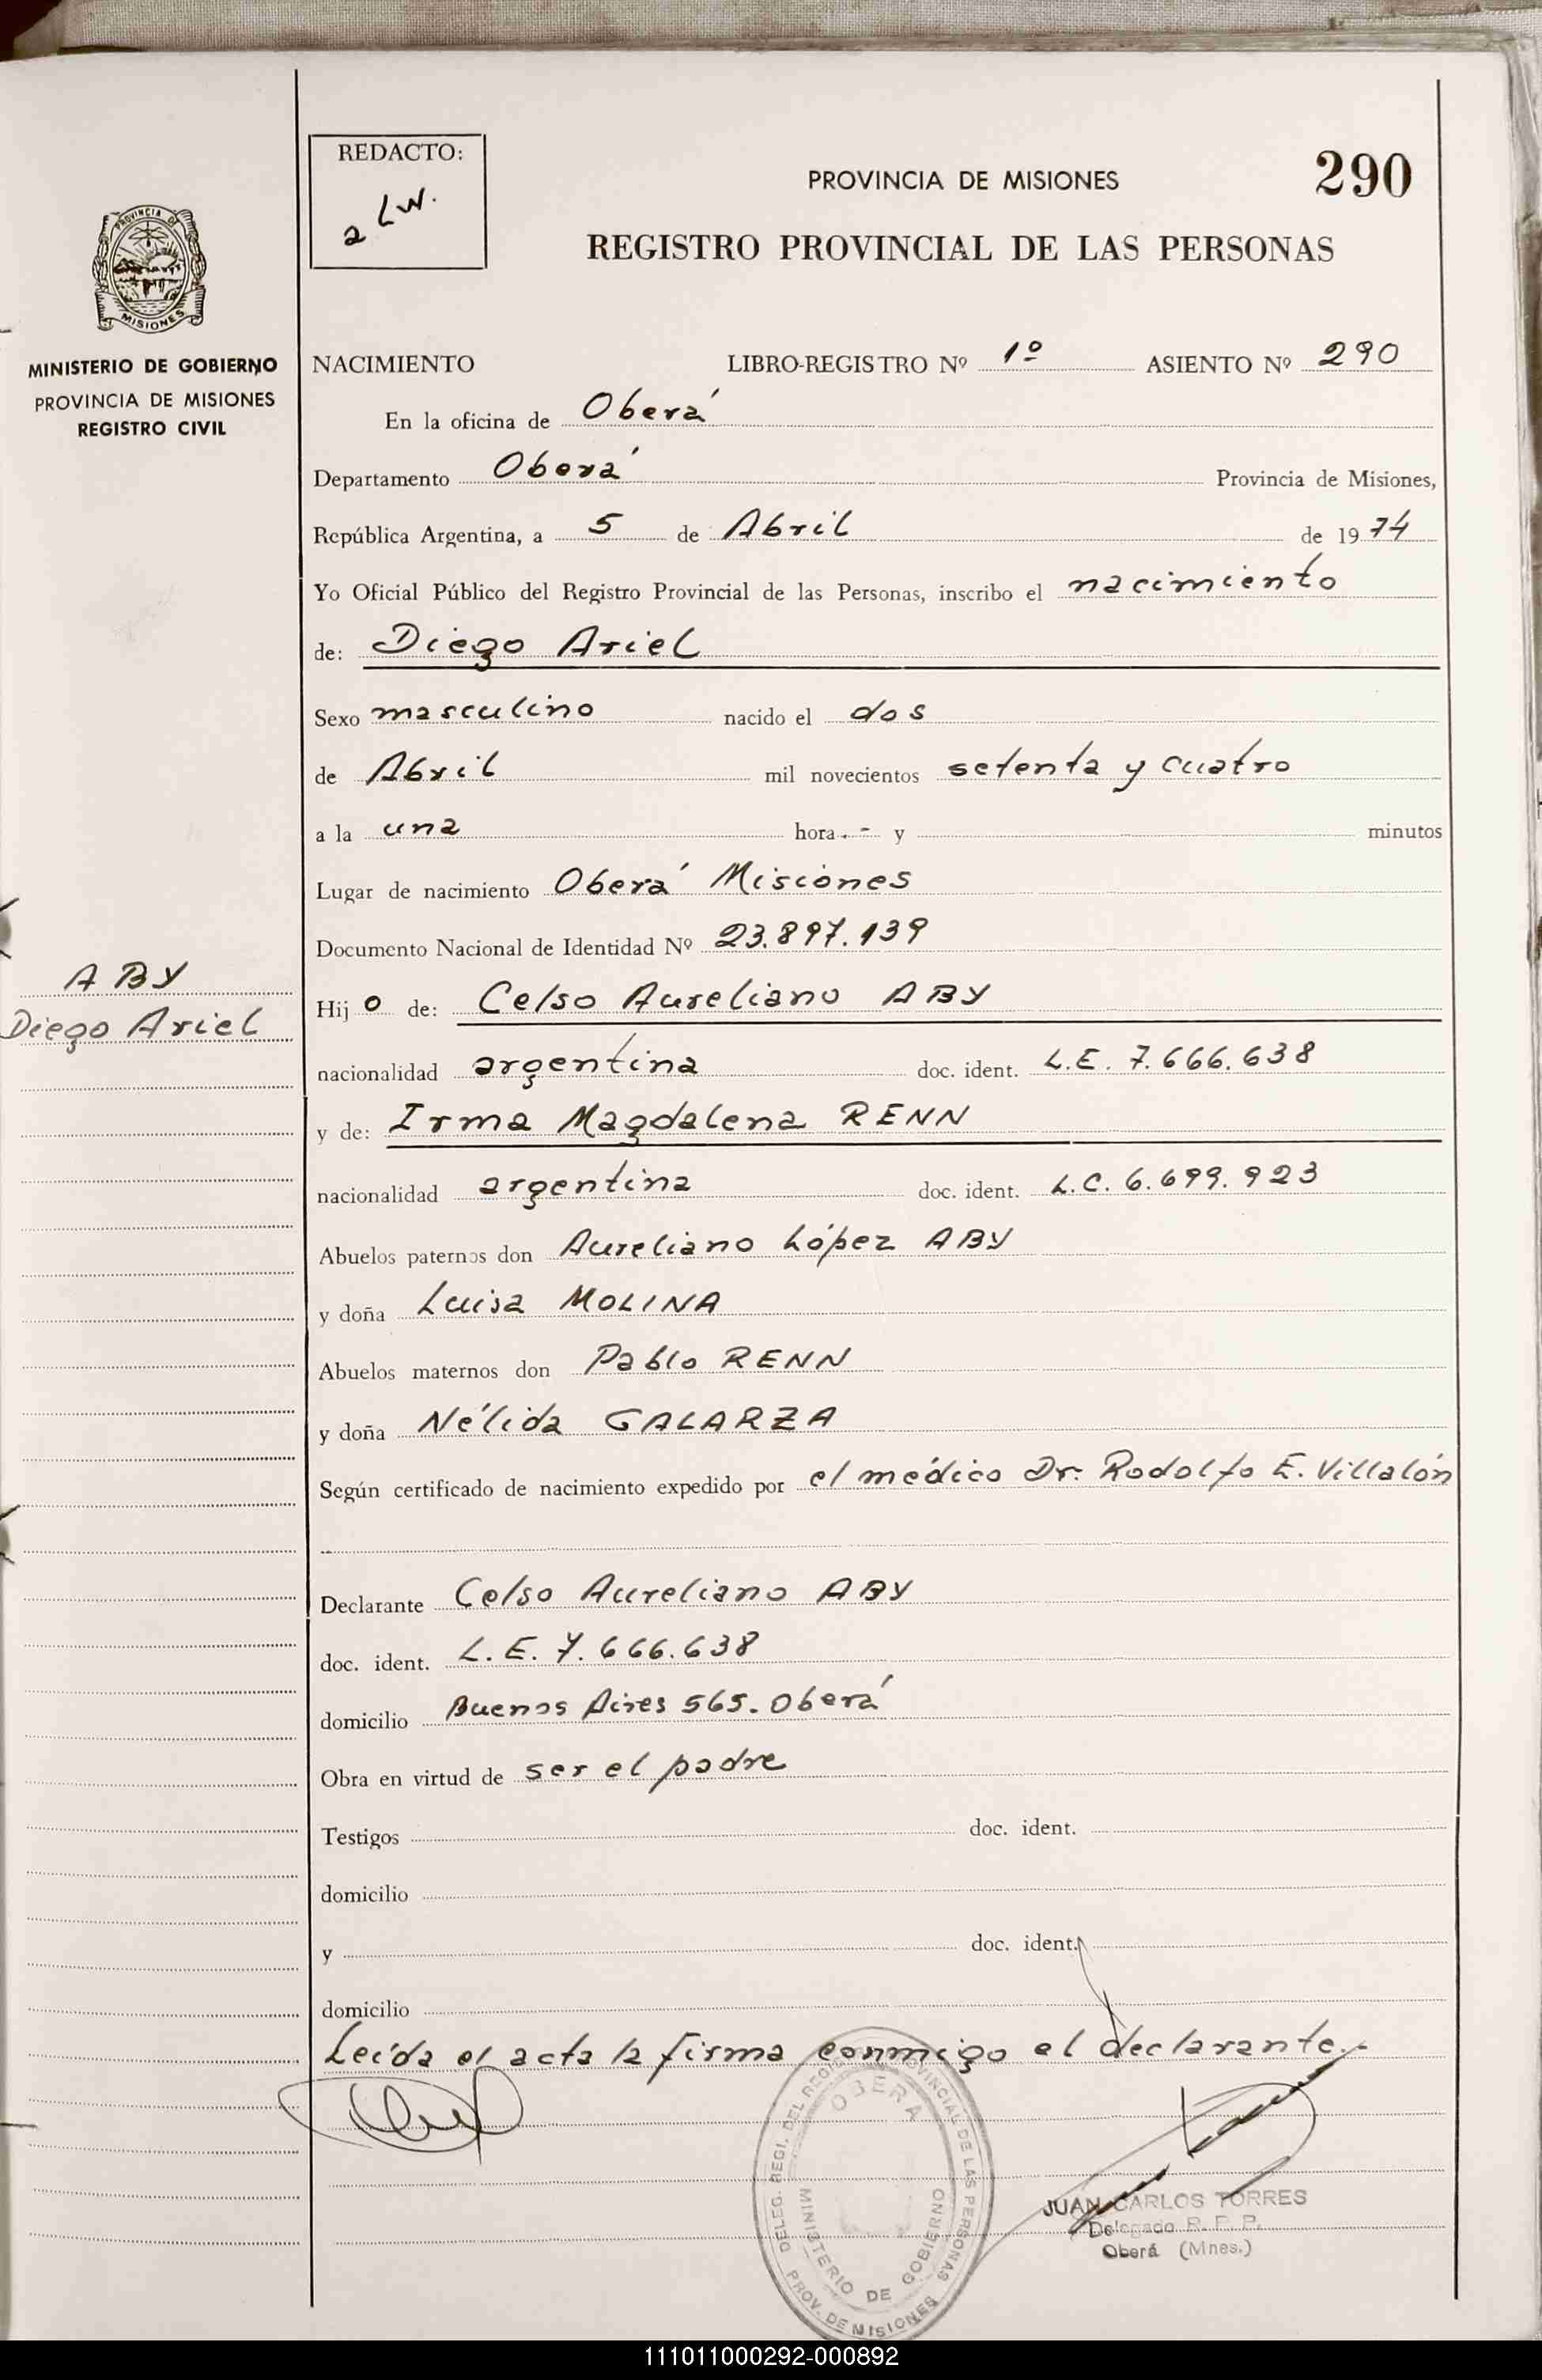 REDACTO:
a LW.
PROVINCIA DE MISIONES
290
REGISTRO PROVINCIAL DE LAS PERSONAS
PROVINCIA DE
MISIONES
MINISTERIO DE GOBIERNO
PROVINCIA DE MISIONES
REGISTRO CIVIL
NACIMIENTO LIBRO-REGISTRO Nº 1º ASIENTO Nº 290
En la oficina de Oberá
Departamento Oberá Provincia de Misiones,
República Argentina, a 5 de Abril de 1974
Yo Oficial Público del Registro Provincial de las Personas, inscribo el nacimiento
de: Diego Ariel
Sexo masculino nacido el dos
de Abril mil novecientos setenta y cuatro
a la una hora. - y minutos
Lugar de nacimiento Oberá Misiones
Documento Nacional de Identidad Nº 23.897.139
ABY
Diego Ariel
Hijo de: Celso Aureliano ABY
nacionalidad argentina doc. ident. L.E. 7.666.638
y de: Irma Magdalena RENN
nacionalidad argentina doc. ident. L.C. 6.699.923
Abuelos paternos don Aureliano López ABY
y doña Luisa MOLINA
Abuelos maternos don Pablo RENN
y doña Nélida GALARZA
Según certificado de nacimiento expedido por el médico Dr. Rodolfo E. Villalón
Declarante Celso Aureliano ABY
doc. ident. L.E. 7.666.638
domicilio Buenos Aires 565. Oberá
Obra en virtud de ser el padre
Testigos doc. ident.
domicilio
y doc. ident.
domicilio
Leída el acta la firma conmigo el declarante.-
DELEG. REGI. DEL REGIS. PROVINCIAL DE LAS PERSONAS
OBERA
MINISTERIO DE GOBIERNO
PROV. DE MISIONES
JUAN CARLOS TORRES
Delegado R. P. P.
Oberá (Mnes.)
111011000292-000892